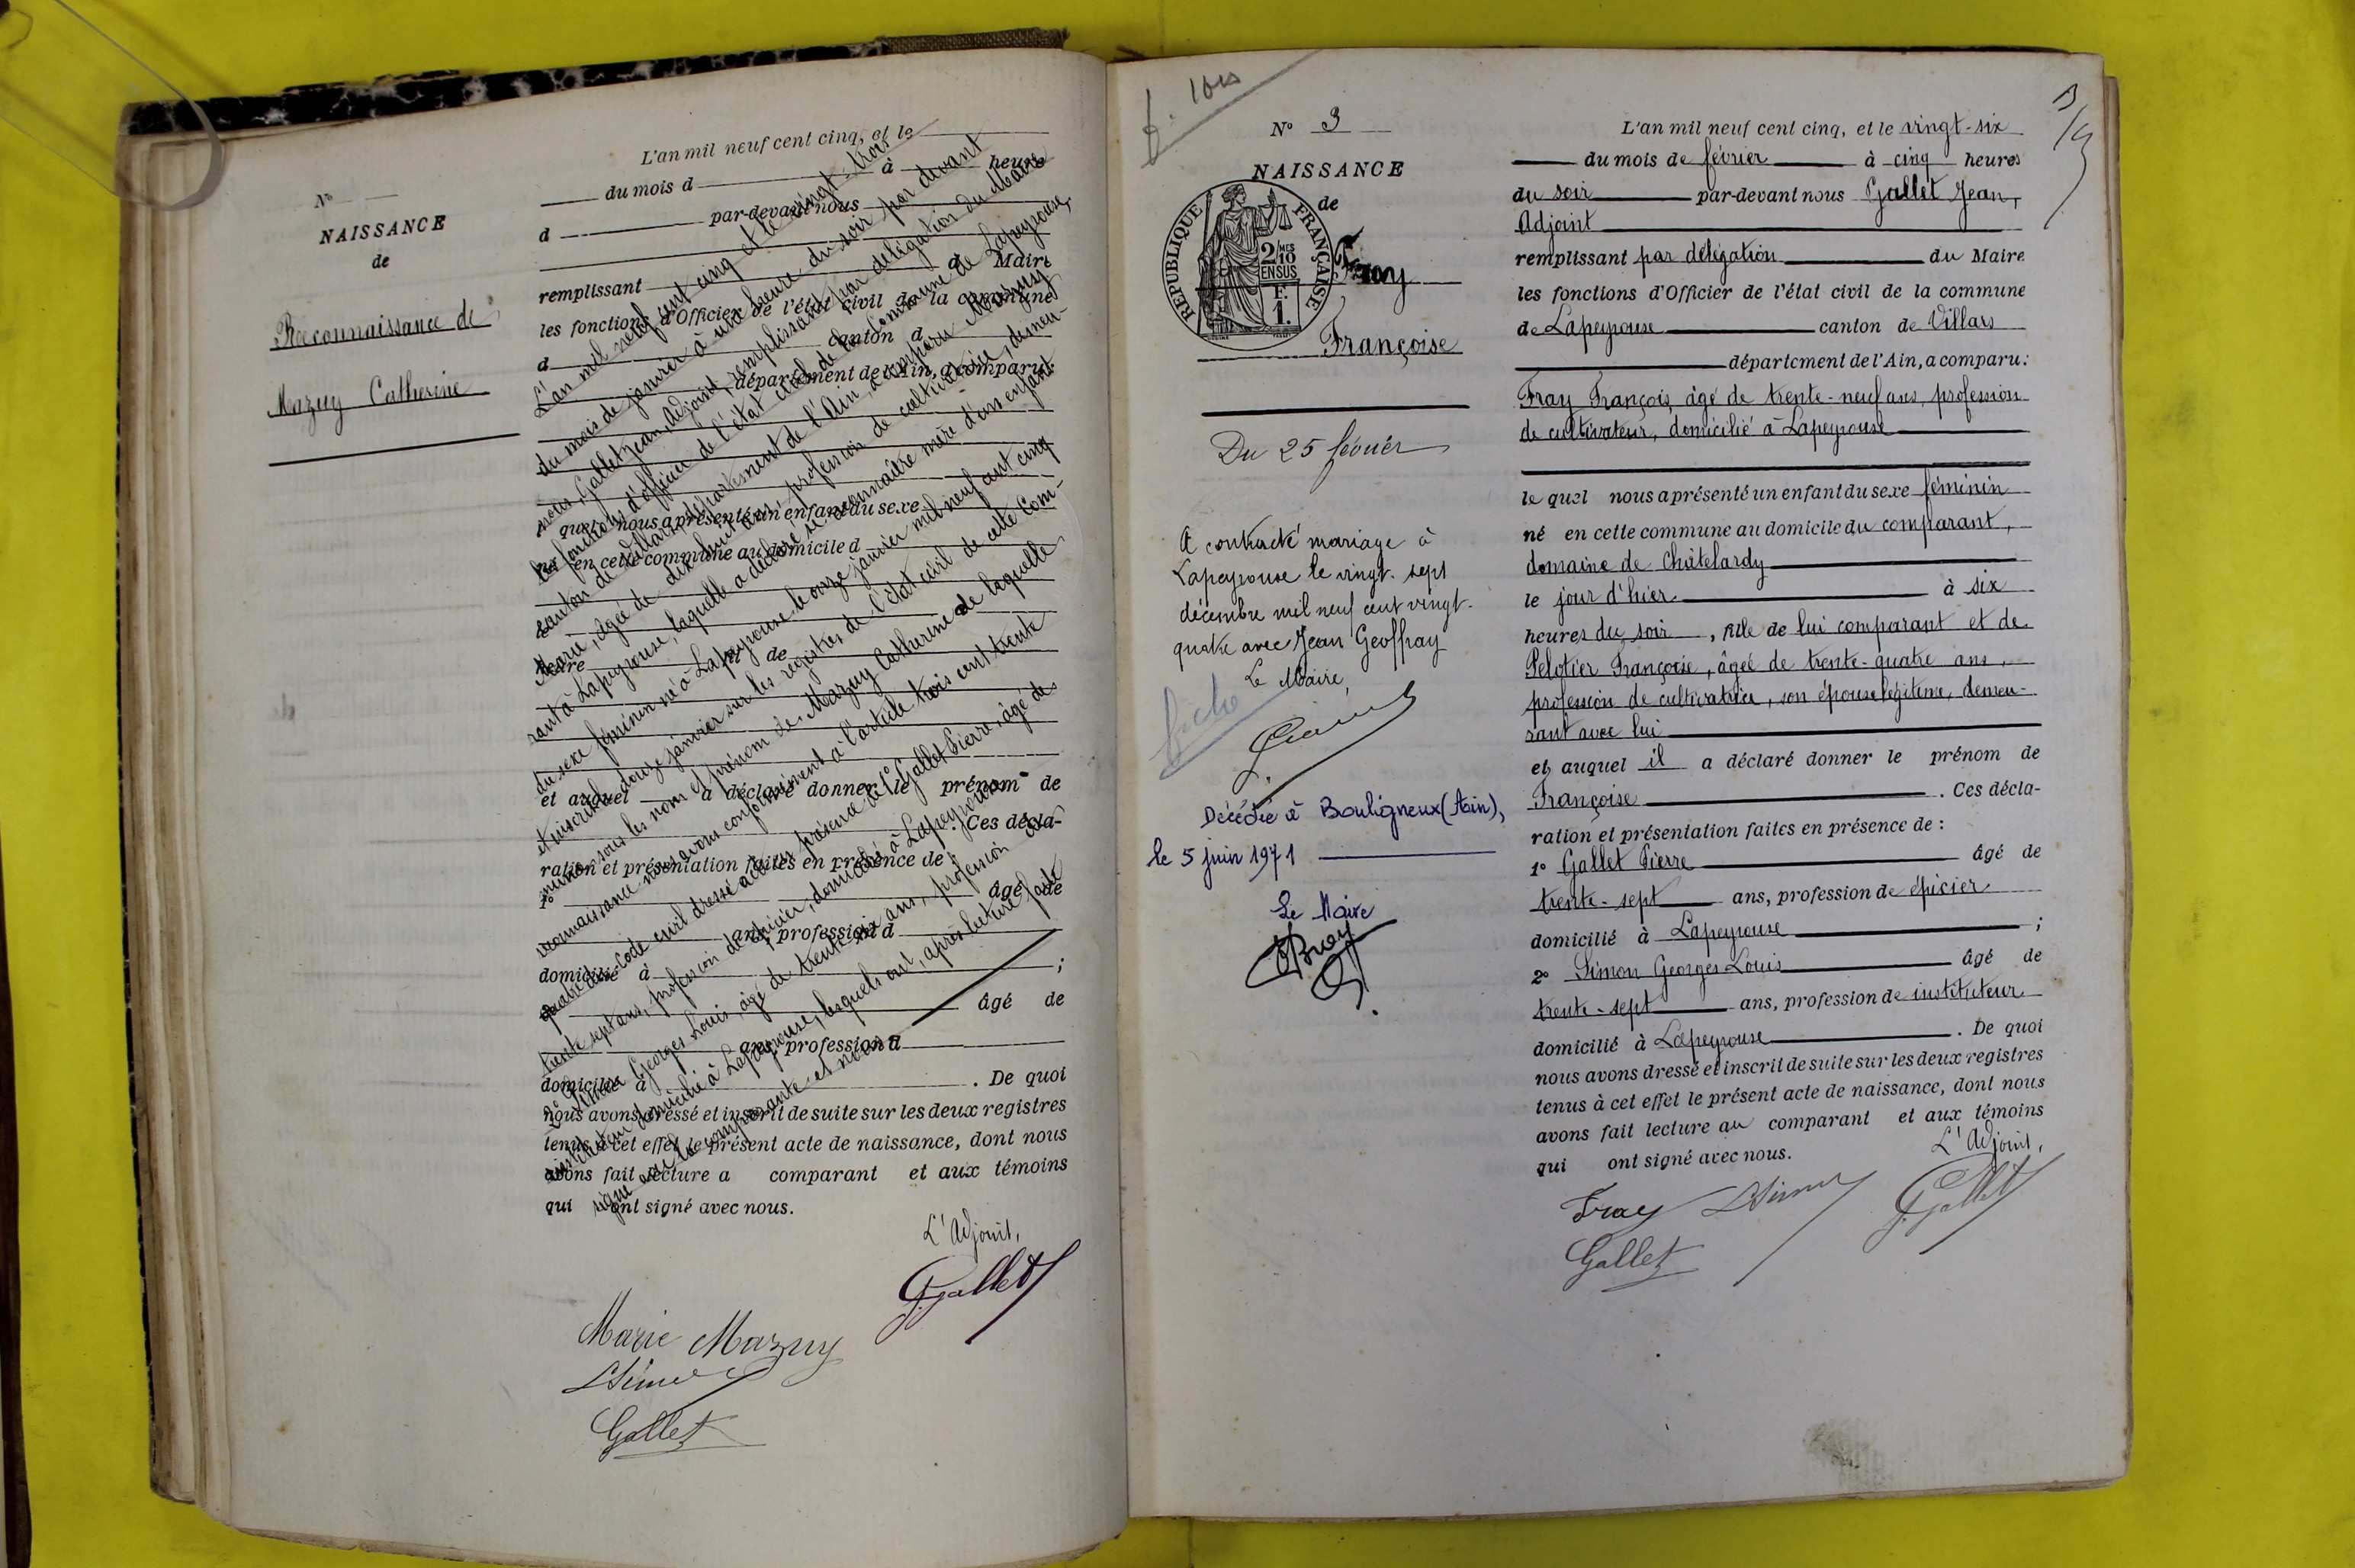 N°
NAISSANCE
de
Reconnaissance de
Mazuy Catherine
L'an mil neuf cent cinq, et le
du mois d à heure
d par-devant nous
remplissant d Maire
les fonctions d'Officier de l'état civil de la commune
d canton d
département de l'Ain, a comparu:
quel nous a présenté un enfant du sexe
né en cette commune au domicile d
heure fil de
et auquel a déclaré donner le prénom de
. Ces décla-
ration et présentation faites en présence de :
1° âgé de
ans, profession d
domicilié à ;
2° âgé de
ans, profession d
domicilié à . De quoi
nous avons dressé et inscrit de suite sur les deux registres
tenus à cet effet le présent acte de naissance, dont nous
avons fait lecture a comparant et aux témoins
qui ont signé avec nous.
L'an mil neuf cent cinq et le vingt-trois
du mois de janvier à une heure du soir par devant
nous, Gallet Jean, Adjoint, remplissant par délégation du Maire
les fonctions d'officier de l'état civil de la Commune de Lapeyrouse,
canton de Villars, département de l'Ain, a comparu Mazuy
Marie, âgée de ans, profession de cultivatrice, demeu-
rant à Lapeyrouse, laquelle a déclaré se reconnaître mère d'un enfant
du sexe féminin né à Lapeyrouse le onze janvier mil neuf cent cinq
et inscrit le douze janvier sur les registres de l'état civil de cette Com-
mune sous les nom et prénom de Mazuy Catherine de laquelle
reconnaissance nous avons conformément à l'article trois cent trente
quatre du Code civil dressé acte en présence de 1° Gallet Pierre, âgé de
trente sept ans, profession de épicier, domicilié à Lapeyrouse
2° Simon Georges Louis, âgé de trente six ans, profession
instituteur domicilié à Lapeyrouse, lesquels ont, après lecture faite
signé avec la comparante et nous.
L'Adjoint,
J. Gallet
Marie Mazuy
LSimon
Gallet
f. 1bis
N° 3
NAISSANCE
de
REPUBLIQUE FRANÇAISE
2/10 MES
EN SUS
F.
1.
Fray
Françoise
Du 25 février
A contracté mariage à
Lapeyrouse le vingt-sept
décembre mil neuf cent vingt-
quatre avec Jean Geoffray
Le Maire,
fiche
Décédée à Bouligneux (Ain),
le 5 juin 1971
Le Maire
L'an mil neuf cent cinq, et le vingt-six
du mois de février à cinq heures
du soir par-devant nous Gallet Jean,
Adjoint
remplissant par délégation du Maire
les fonctions d'Officier de l'état civil de la commune
de Lapeyrouse canton de Villars
département de l'Ain, a comparu:
Fray François, âgé de trente-neuf ans, profession
de cultivateur, domicilié à Lapeyrouse
le quel nous a présenté un enfant du sexe féminin
né en cette commune au domicile du comparant,
domaine de Châtelardy
le jour d'hier à six
heures du soir, fille de lui comparant et de
Pelotier Françoise, âgée de trente-quatre ans,
profession de cultivatrice, son épouse légitime, demeu-
rant avec lui
et auquel il a déclaré donner le prénom de
Françoise . Ces décla-
ration et présentation faites en présence de :
1° Gallet Pierre âgé de
trente-sept ans, profession de épicier
domicilié à Lapeyrouse ;
2° Simon Georges Louis âgé de
trente-sept ans, profession de instituteur
domicilié à Lapeyrouse . De quoi
nous avons dressé et inscrit de suite sur les deux registres
tenus à cet effet le présent acte de naissance, dont nous
avons fait lecture au comparant et aux témoins
qui ont signé avec nous.
L'Adjoint,
Fray LSimon J. Gallet
Gallet